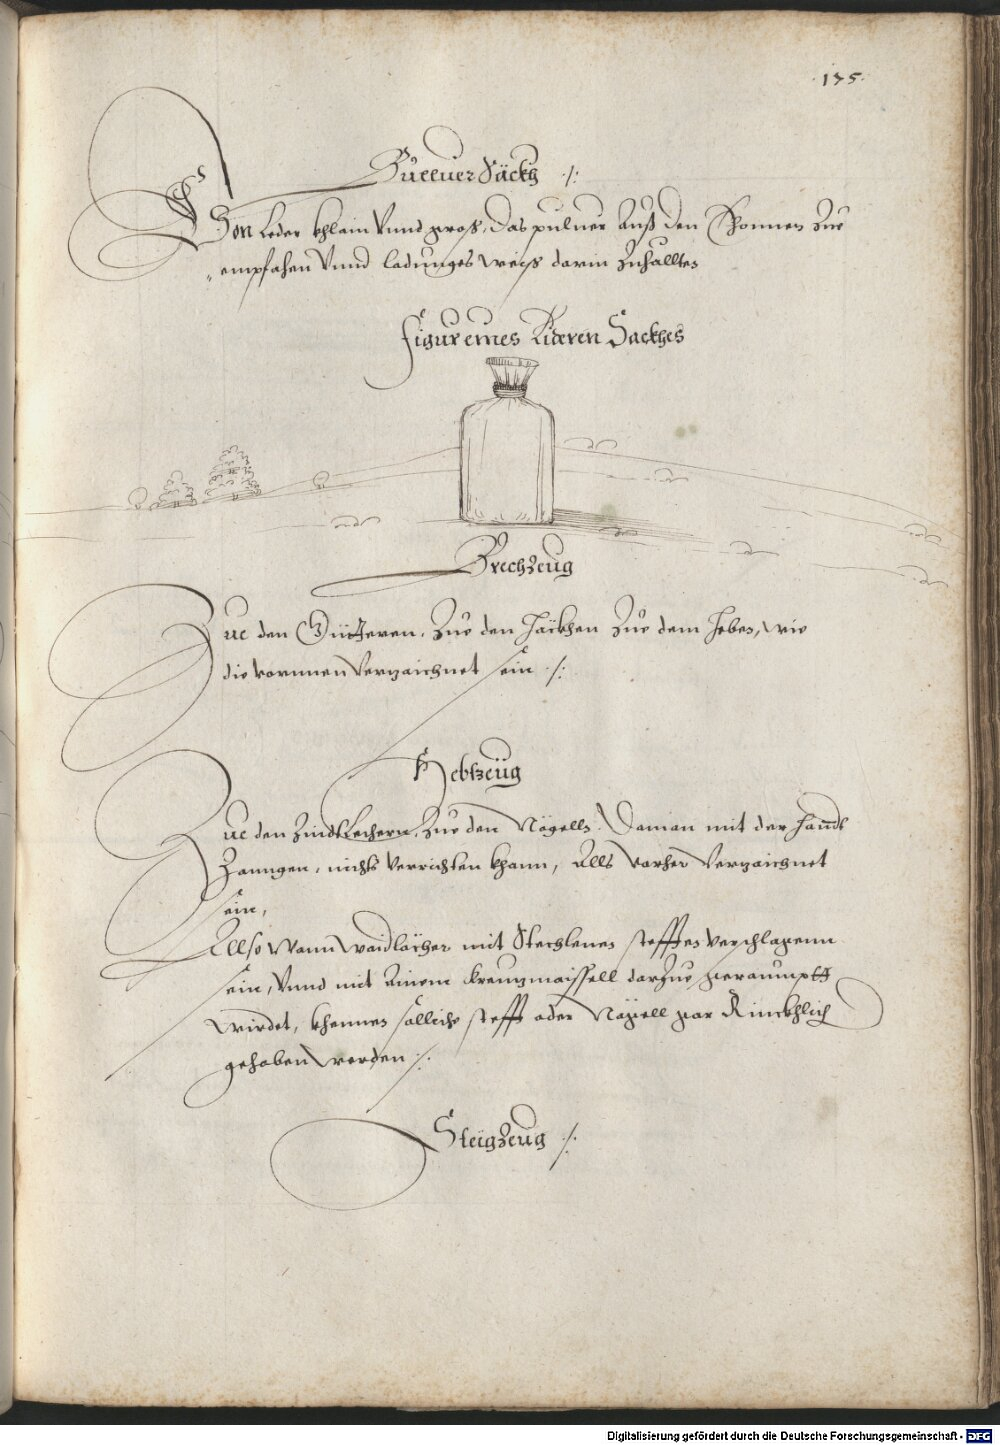 .175.
Pulluer Säckh ./.
Von Leder khlain Vnnd gross, das puluer Auß den Thonnen Zue
empfahen Vnnd ladungs weiß darin Zuhallten
Figur eines Lideren Sackhes
Brechzeug
Zue den Gütteren, Zue den Häckhen Zue dem heben, wie
die vornnen Verzaichnet sein ./.
Hebzeüg
Zue den Zindtlechern, Zue den Nägells. Da man mit der handt
Zanngen, nichts verrichten khann, Alls vorher Verzaichnet
sein,
Allso Wann Waidlächer mit Stechlenen stefften verschlagenn
sein, Vnnd mit Ainem kreuzmaissell darzue geraumptt
wirdet, khennen sölliche stefft oder Nägell gar Rinckhlich
gehaben werden ./.
Steigzeug ./.
Digitalisierung gefördert durch die Deutsche Forschungsgemeinschaft - DFG